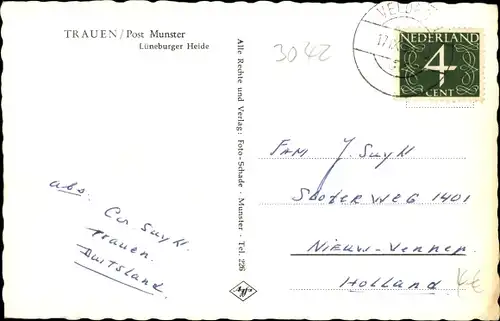 TRAUEN/Post Munster
Lüneburger Heide
3042
NEDERLAND
4
CENT
Alle Rechte und Verlag: Foto-Schade · Munster · Tel. 226
FAM J. Suyk
1401
NIEUW-Vennep
Holland
abs: Cor Suyk.
Trauen.
Duitsland